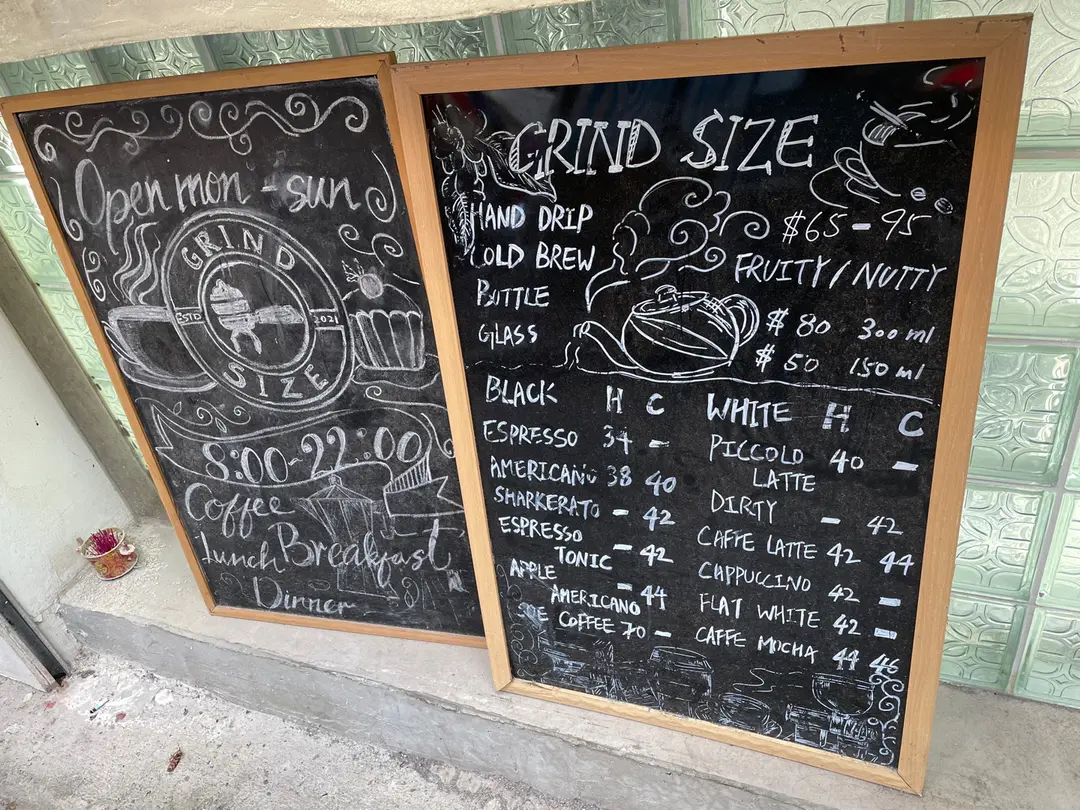 Open mon - sun
GRIND
ESTD 2021
SIZE
8:00-22:00
Coffee
Lunch Breakfast
Dinner
GRIND SIZE
HAND DRIP $65-95
COLD BREW FRUITY / NUTTY
BOTTLE $80 300ml
GLASS $50 150ml
BLACK H C
ESPRESSO 34 -
AMERICANO 38 40
SHARKERATO - 42
ESPRESSO
TONIC - 42
APPLE
AMERICANO - 44
SOE COFFEE 70 -
WHITE H C
PICCOLO 40 -
LATTE
DIRTY - 42
CAFFE LATTE 42 44
CAPPUCCINO 42 -
FLAT WHITE 42 -
CAFFE MOCHA 44 46